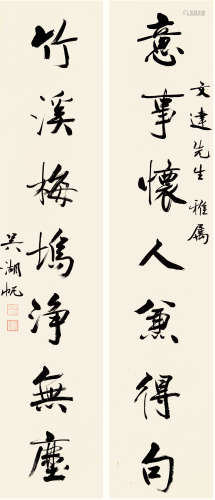 意事懷人兼得句
文建先生雅属
竹溪梅塢浄無塵
吳湖帆